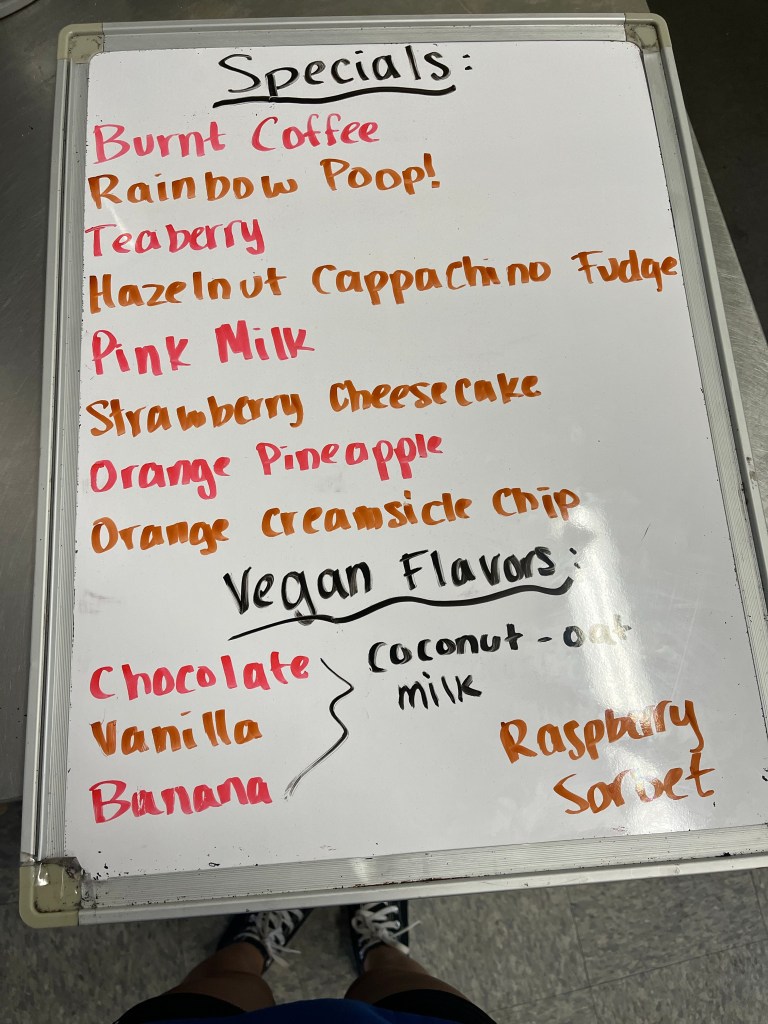 Specials:
Burnt Coffee
Rainbow Poop!
Teaberry
Hazelnut Cappachino Fudge
Pink Milk
Strawberry Cheesecake
Orange Pineapple
Orange Creamsicle Chip
Vegan Flavors:
Chocolate
Vanilla
Banana
coconut - oat
milk
Raspberry
Sorbet